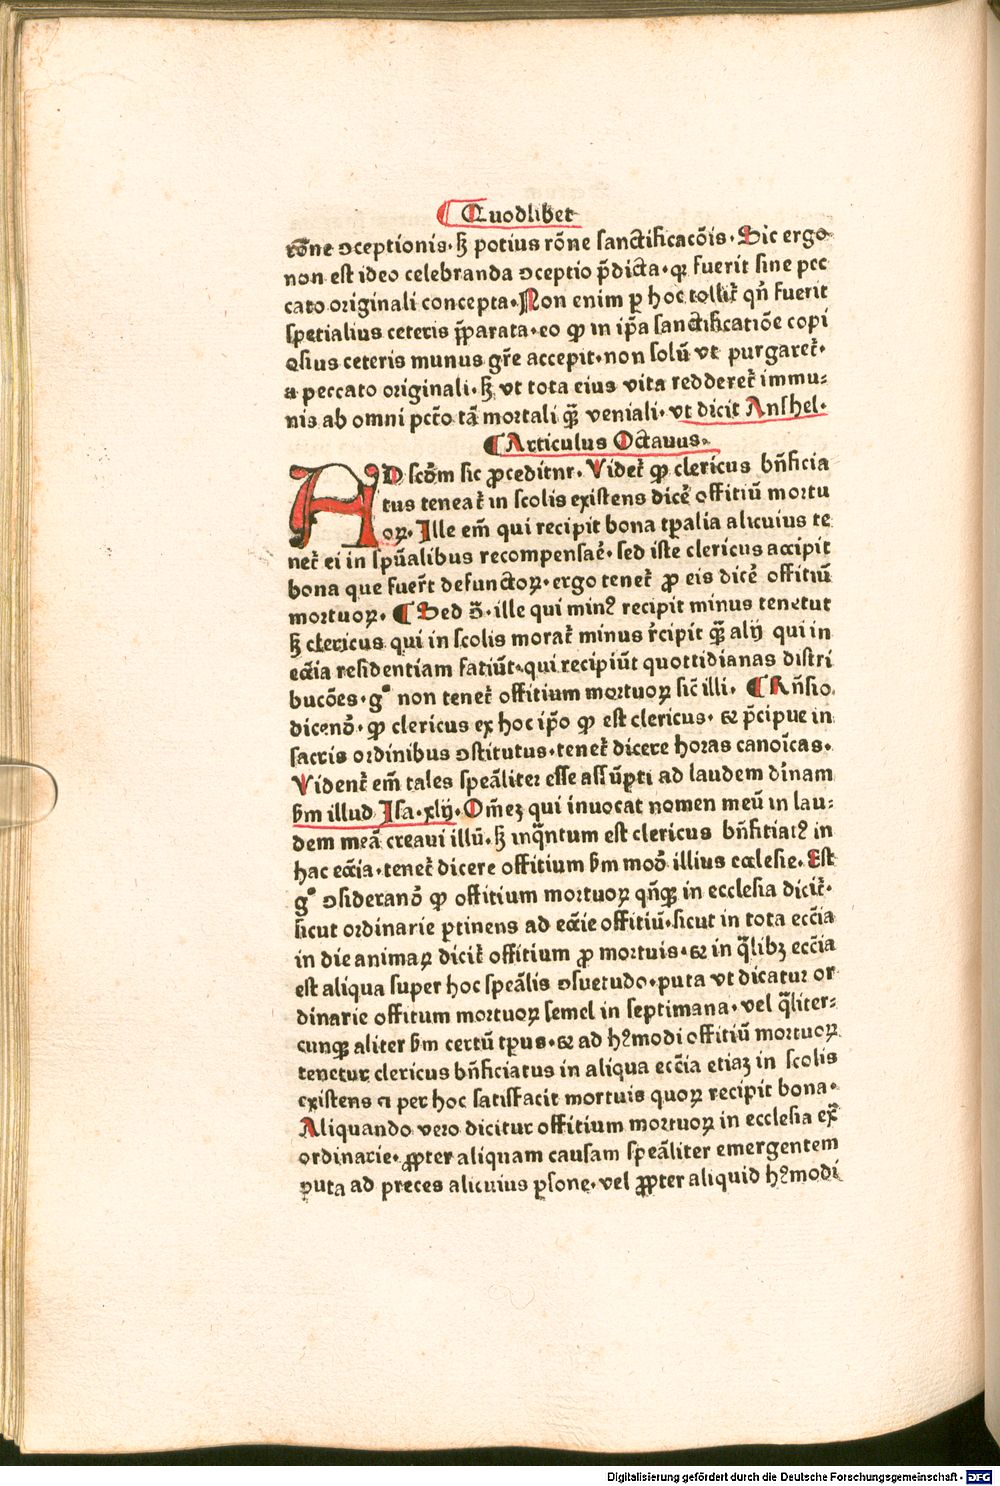 ¶ Quodlibet
rōne ↄceptionis. sꝫ potius rōne sanctificacōis. Sic ergo
non est ideo celebranda ↄceptio p̄dicta. qꝛ fuerit sine pec
cato originali concepta. Non enim ꝑ hoc tollit̄ qn̄ fuerit
spetialius ceteris p̄parata. eo ꝙ in ip̄a sanctificatiōe copi
osius ceteris munus gr̄e accepit. non solū vt purgaret̄.
a peccato originali. sꝫ vt tota eius vita redderet̄ immu⸗
nis ab omni pctō tā mortali qᷓꝫ veniali. vt dicit Anshel.
¶ Articulus Octauus.
AD scōm sic ꝓceditur. Videt̄ ꝙ clericus bn̄ficia
tus teneat̄ in scolis existens dicē offitiū mortu
oꝝ. Ille em̄ qui recipit bona tp̄alia alicuius te
net̄ ei in spūalibus recompensaē. sed iste clericus accipit
bona que fuer̄t defunctoꝝ. ergo tenet̄ ꝓ eis dicē offitiū
mortuoꝝ. ¶ Sed ꝯ̄. ille qui minꝰ recipit minus tenetut
sꝫ clericus qui in scolis morat̄ minus r̄cipit qᷓꝫ alij qui in
eccīa residentiam fatiūt. qui recipiūt quottidianas distri
bucōes. gͦ non tenet̄ offitium mortuoꝝ sic̄ illi. ¶ Rn̄sio.
dicenō. ꝙ clericus ex hoc ip̄o ꝙ est clericus. ⁊ p̄cipue in
sacris ordinibus ↄstitutus. tenet̄ dicere horas canoīcas.
Vident̄ em̄ tales speāliter esse assūpti ad laudem diīnam
ẜm illud Isa. xlij. Om̄eꝫ qui inuocat nomen meū in lau⸗
dem meā creaui illū. sꝫ inqᷓntum est clericus bn̄fitiatꝰ in
hac eccīa. tenet̄ dicere offitium ẜm moō illius ecclesie. Est
gͦ ↄsideranō ꝙ offitium mortuoꝝ qn̄qꝫ in ecclesia dicit̄.
sicut ordinarie ꝑtinens ad eccīe offitiū. sicut in tota eccīa
in die animaꝝ dicit̄ offitium ꝓ mortuis. ⁊ in qᷓlibꝫ eccīa
est aliqua super hoc speālis ↄsuetudo. puta vt dicatur or
dinarie offitum mortuoꝝ semel in septimana. vel qᷓliter⸗
cunqꝫ aliter ẜm certū tp̄us. ⁊ ad hꝰmodi offitiū mortuoꝝ
tenetur clericus bn̄ficiatus in aliqua eccīa etiaꝫ in scolis
existens ⁊ per hoc satisfacit mortuis quoꝝ recipit bona.
Aliquando vero dicitur offitium mortuoꝝ in ecclesia ex̄
ordinarie. ꝓpter aliquam causam speāliter emergentem
puta ad preces alicuius ꝑsone. vel ꝓpter aliquid hꝰmodi
Digitalisierung gefördert durch die Deutsche Forschungsgemeinschaft - DFG